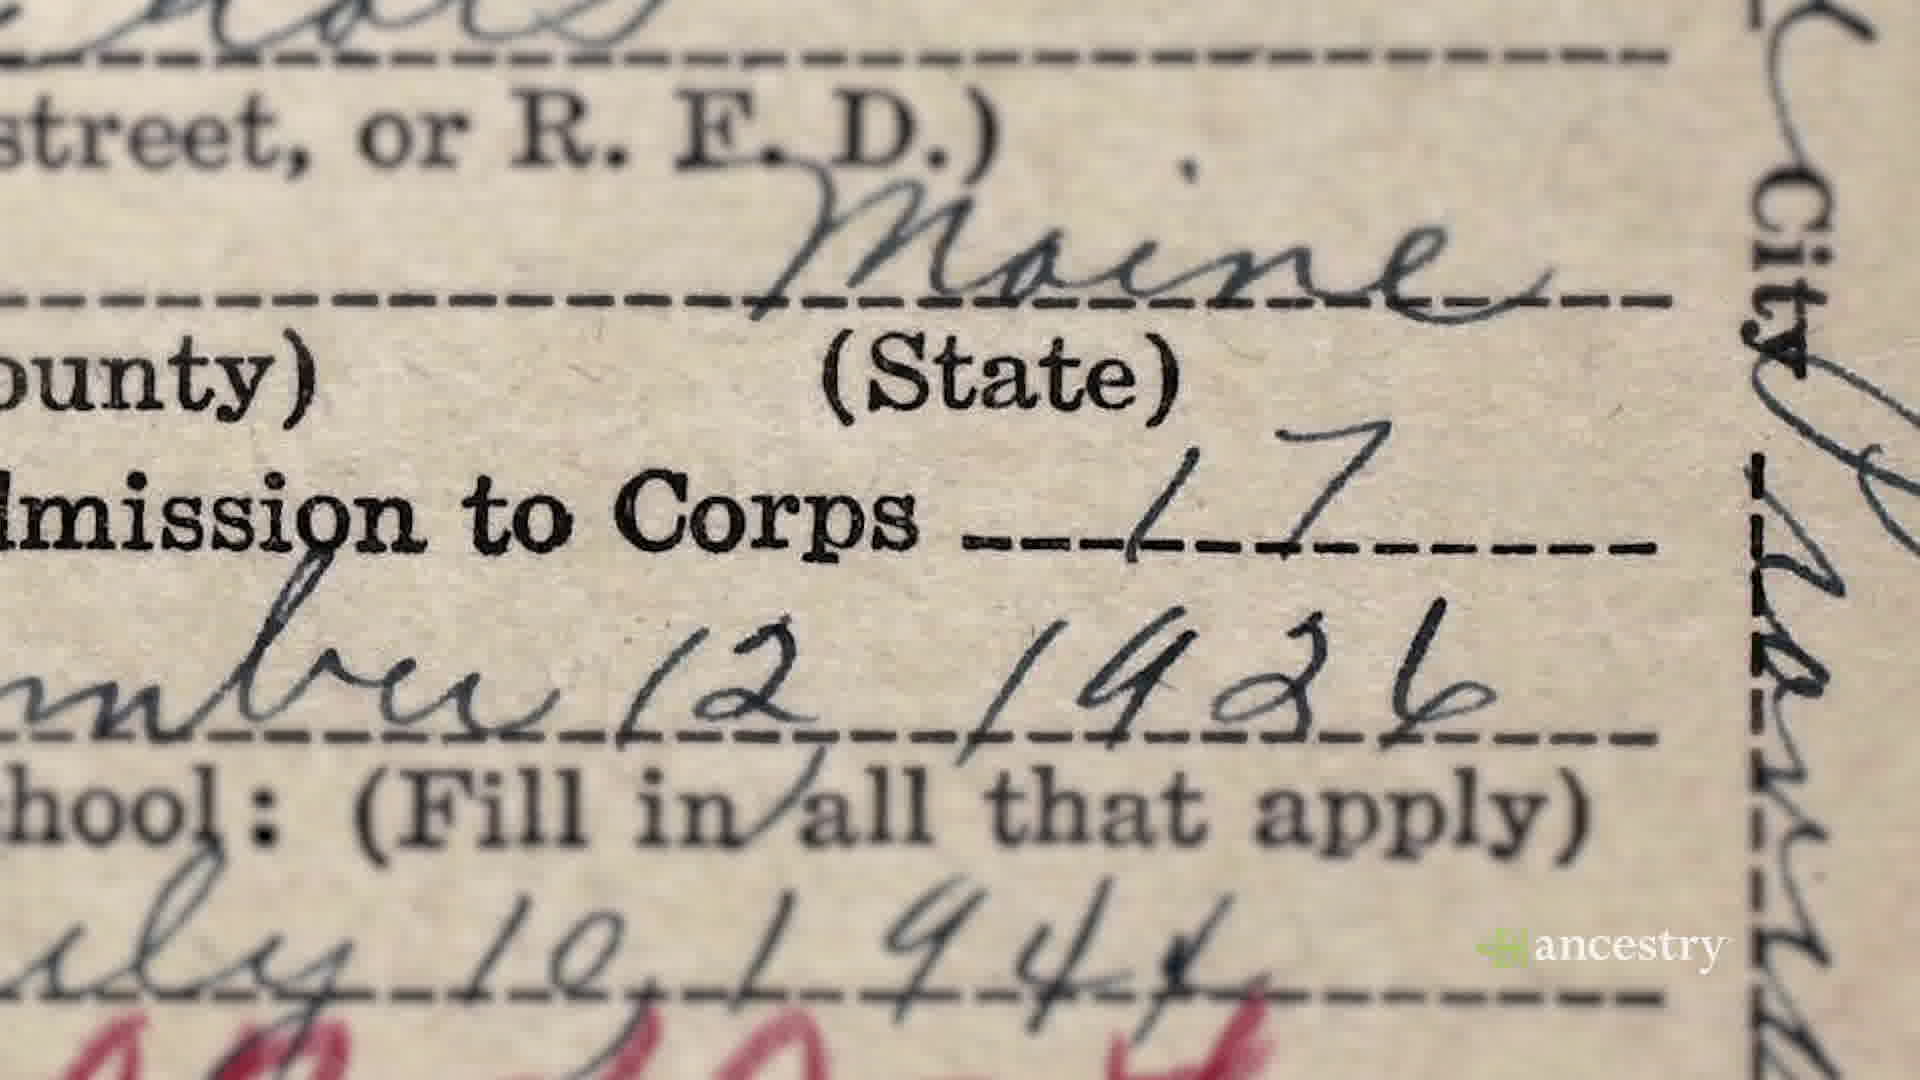 street, or R. F. D.)
Maine
ounty) (State)
dmission to Corps 17
mber 12 1926
hool: (Fill in all that apply)
uly 10, 1944
City
ancestry